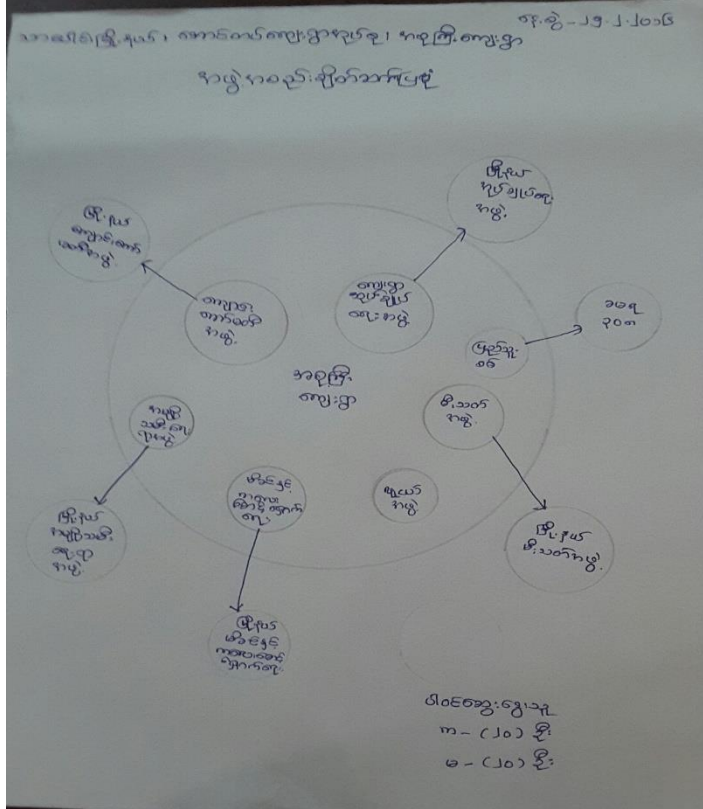 နေ့စွဲ - ၂၅.၂.၂၀၁၆
သာပေါင်းမြို့နယ်၊ တောင်ကပ်ကျေးရွာအုပ်စု၊ အစုကြီးကျေးရွာ
အဖွဲ့အစည်းချိတ်ဆက်ပြပုံ
မြို့နယ်
အုပ်ချုပ်ရေး
အဖွဲ့
မြို့နယ်
ကျောင်းကော်
မတီအဖွဲ့
ကျောင်း
ကော်မတီ
အဖွဲ့
ကျေးရွာ
အုပ်ချုပ်
ရေးအဖွဲ့
ခမရ
၃၀၈
ပြည်သူ့
စစ်
အစုကြီး
ကျေးရွာ
မီးသတ်
အဖွဲ့
အမျိုး
သမီးရေး
ရာအဖွဲ့
မိခင်နှင့်
ကလေး
စောင့်ရှောက်
ရေး
လူငယ်
အဖွဲ့
မြို့နယ်
အမျိုးသမီး
ရေးရာ
အဖွဲ့
မြို့နယ်
မီးသတ်အဖွဲ့
မြို့နယ်
မိခင်နှင့်
ကလေးစောင့်
ရှောက်ရေး
ပါဝင်ဆွေးနွေးသူ
က - (၂၀) ဦး
မ - (၂၀) ဦး